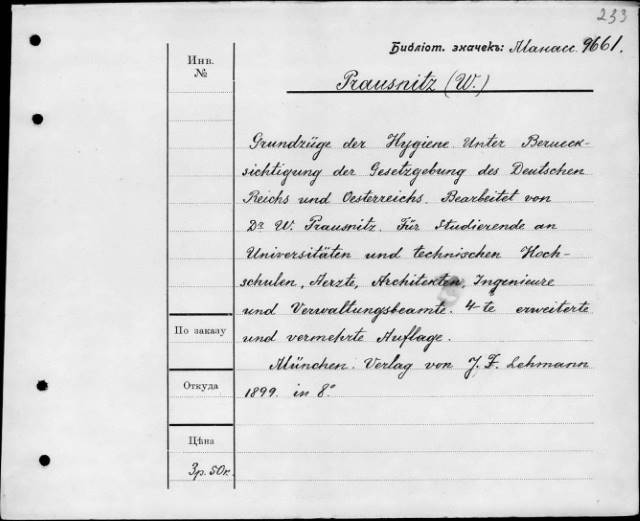 233
Библіот. значекъ: Манасс. 9661.
Инв.
№
Prausnitz (W.)
Grundzüge der Hygiene Unter Berueck-
sichtigung der Gesetzgebung des Deutschen
Reichs und Oesterreichs. Bearbeitet von
Dr W. Prausnitz. Für Studierende an
Universitäten und technischen Hoch-
schulen, Aerzte, Architekten, Ingenieure
und Verwaltungsbeamte. 4-te erweiterte
und vermehrte Auflage.
München. Verlag von J. F. Lehmann
1899. in 8°
По заказу
Откуда
Цѣна
3р. 50к.